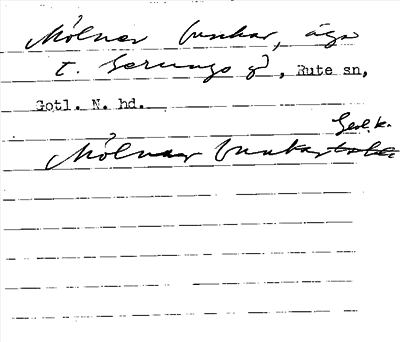 Mölner bunkar, äga
t. Gerungs gd, Rute sn,
Gotl. N. hd.
Geol. k.
Mölner bunkar